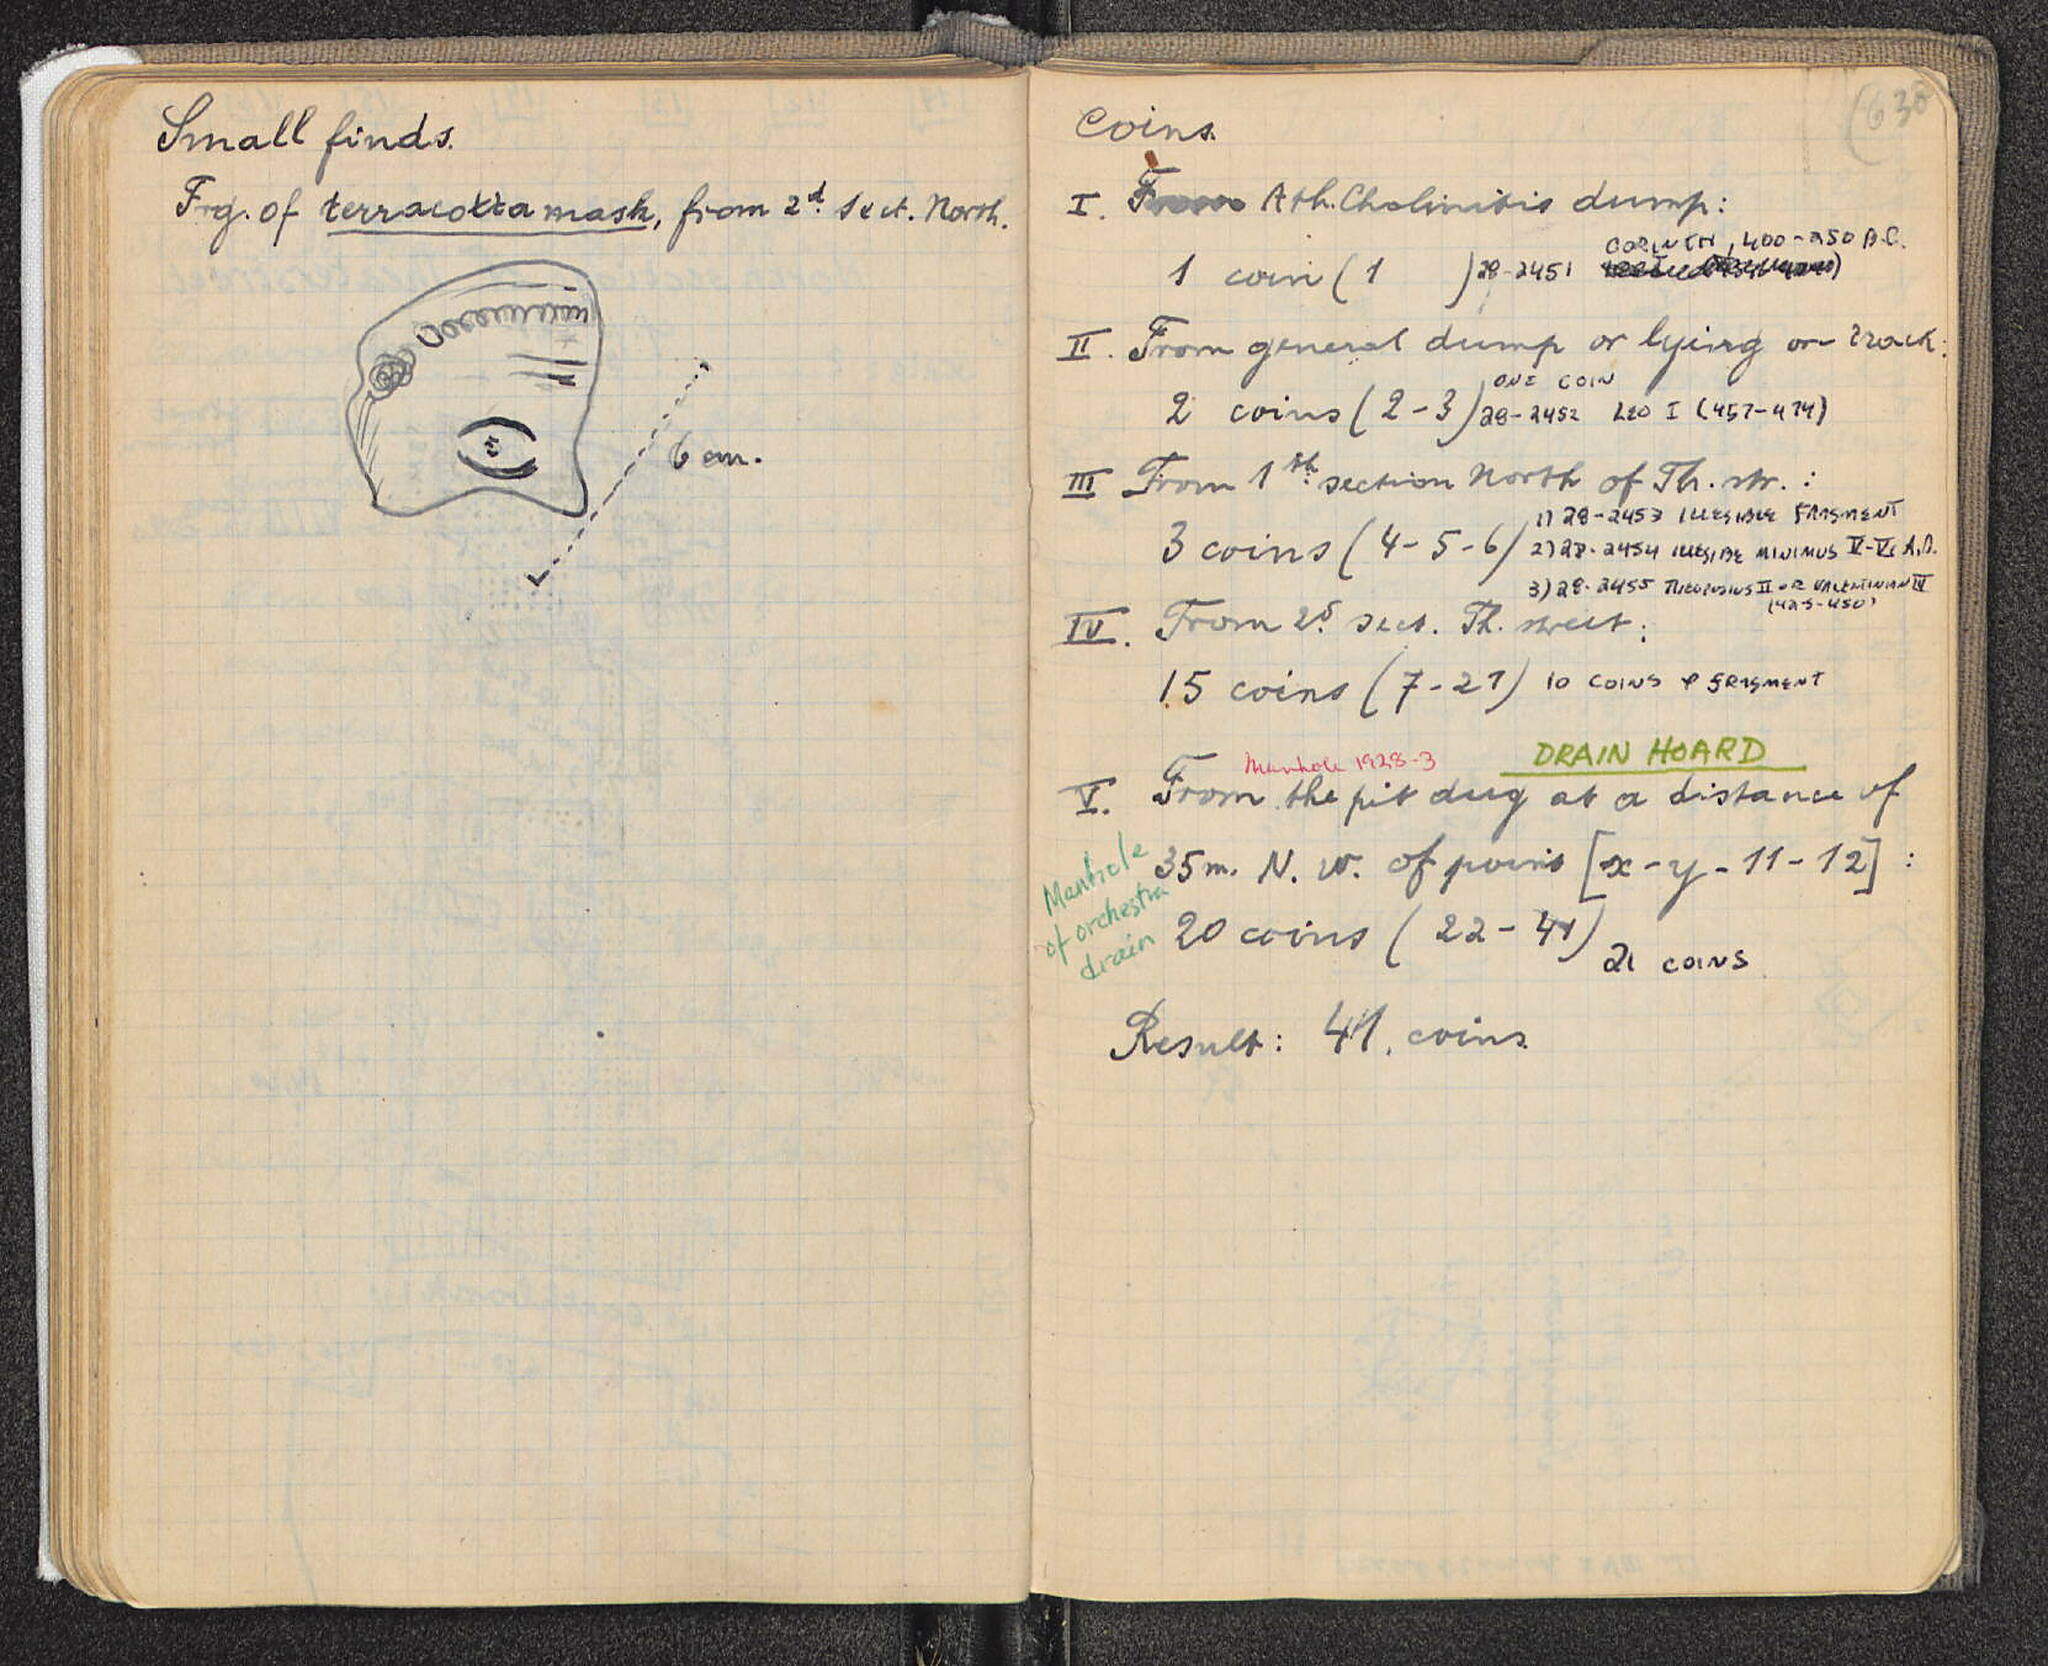 Small finds.
Frg. of terracotta mask, from 2d. sect. North.
6 cm.
630
Coins.
I. From Ath. Chalinitis dump:
CORINTH, 400-250 B.C.
1 coin (1 ) 28-2451
II. From general dump or lying on track:
ONE COIN
2 coins (2-3) 28-2452 LEO I (457-474)
III From 1st. section North of Th. str.:
1) 28-2453 ILLEGIBLE FRAGMENT
3 coins (4-5-6) 2) 28-2454 ILLEGIBLE MINIMUS V-VI A.D.
3) 28-2455 THEODOSIUS II OR VALENTINIAN III
(425-450)
IV. From 2d. sect. Th. street:
15 coins (7-21) 10 COINS & FRAGMENT
Manhole 1928-3 DRAIN HOARD
V. From the pit dug at a distance of
35 m. N. W. of point [x-y-11-12]:
Manhole
of orchestra
drain
20 coins (22-41) 21 COINS
Result: 41. coins.